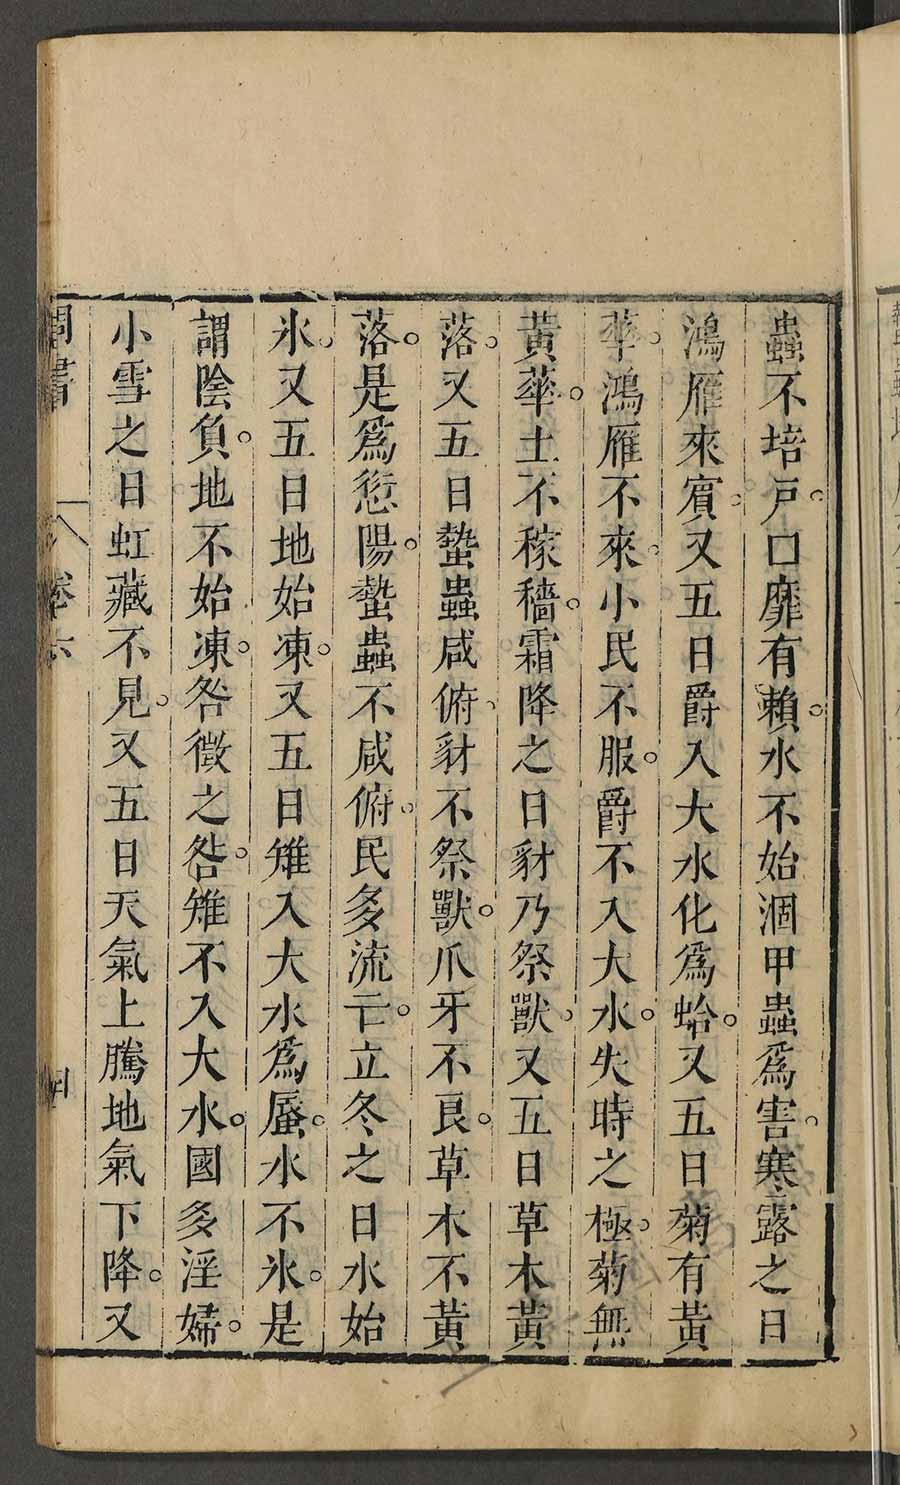 蟲不培戶。口靡有賴。水不始涸甲蟲爲害。寒露之日
鴻雁來賓。又五日爵入大水化爲蛤。又五日菊有黃
華。鴻雁不來。小民不服。爵不入大水。失時之極。菊無
黃華。土不稼穡。霜降之日豺乃祭獸。又五日草木黃
落。又五日蟄蟲咸俯。豺不祭獸。爪牙不良。草木不黃
落。是爲愆陽。蟄蟲不咸俯。民多流亡。立冬之日水始
氷。又五日地始凍。又五日雉入大水爲蜃。水不氷。是
謂陰負。地不始凍。咎徵之咎。雉不入大水。國多淫婦。
小雪之日虹藏不見。又五日天氣上騰地氣下降。又
周書 卷六